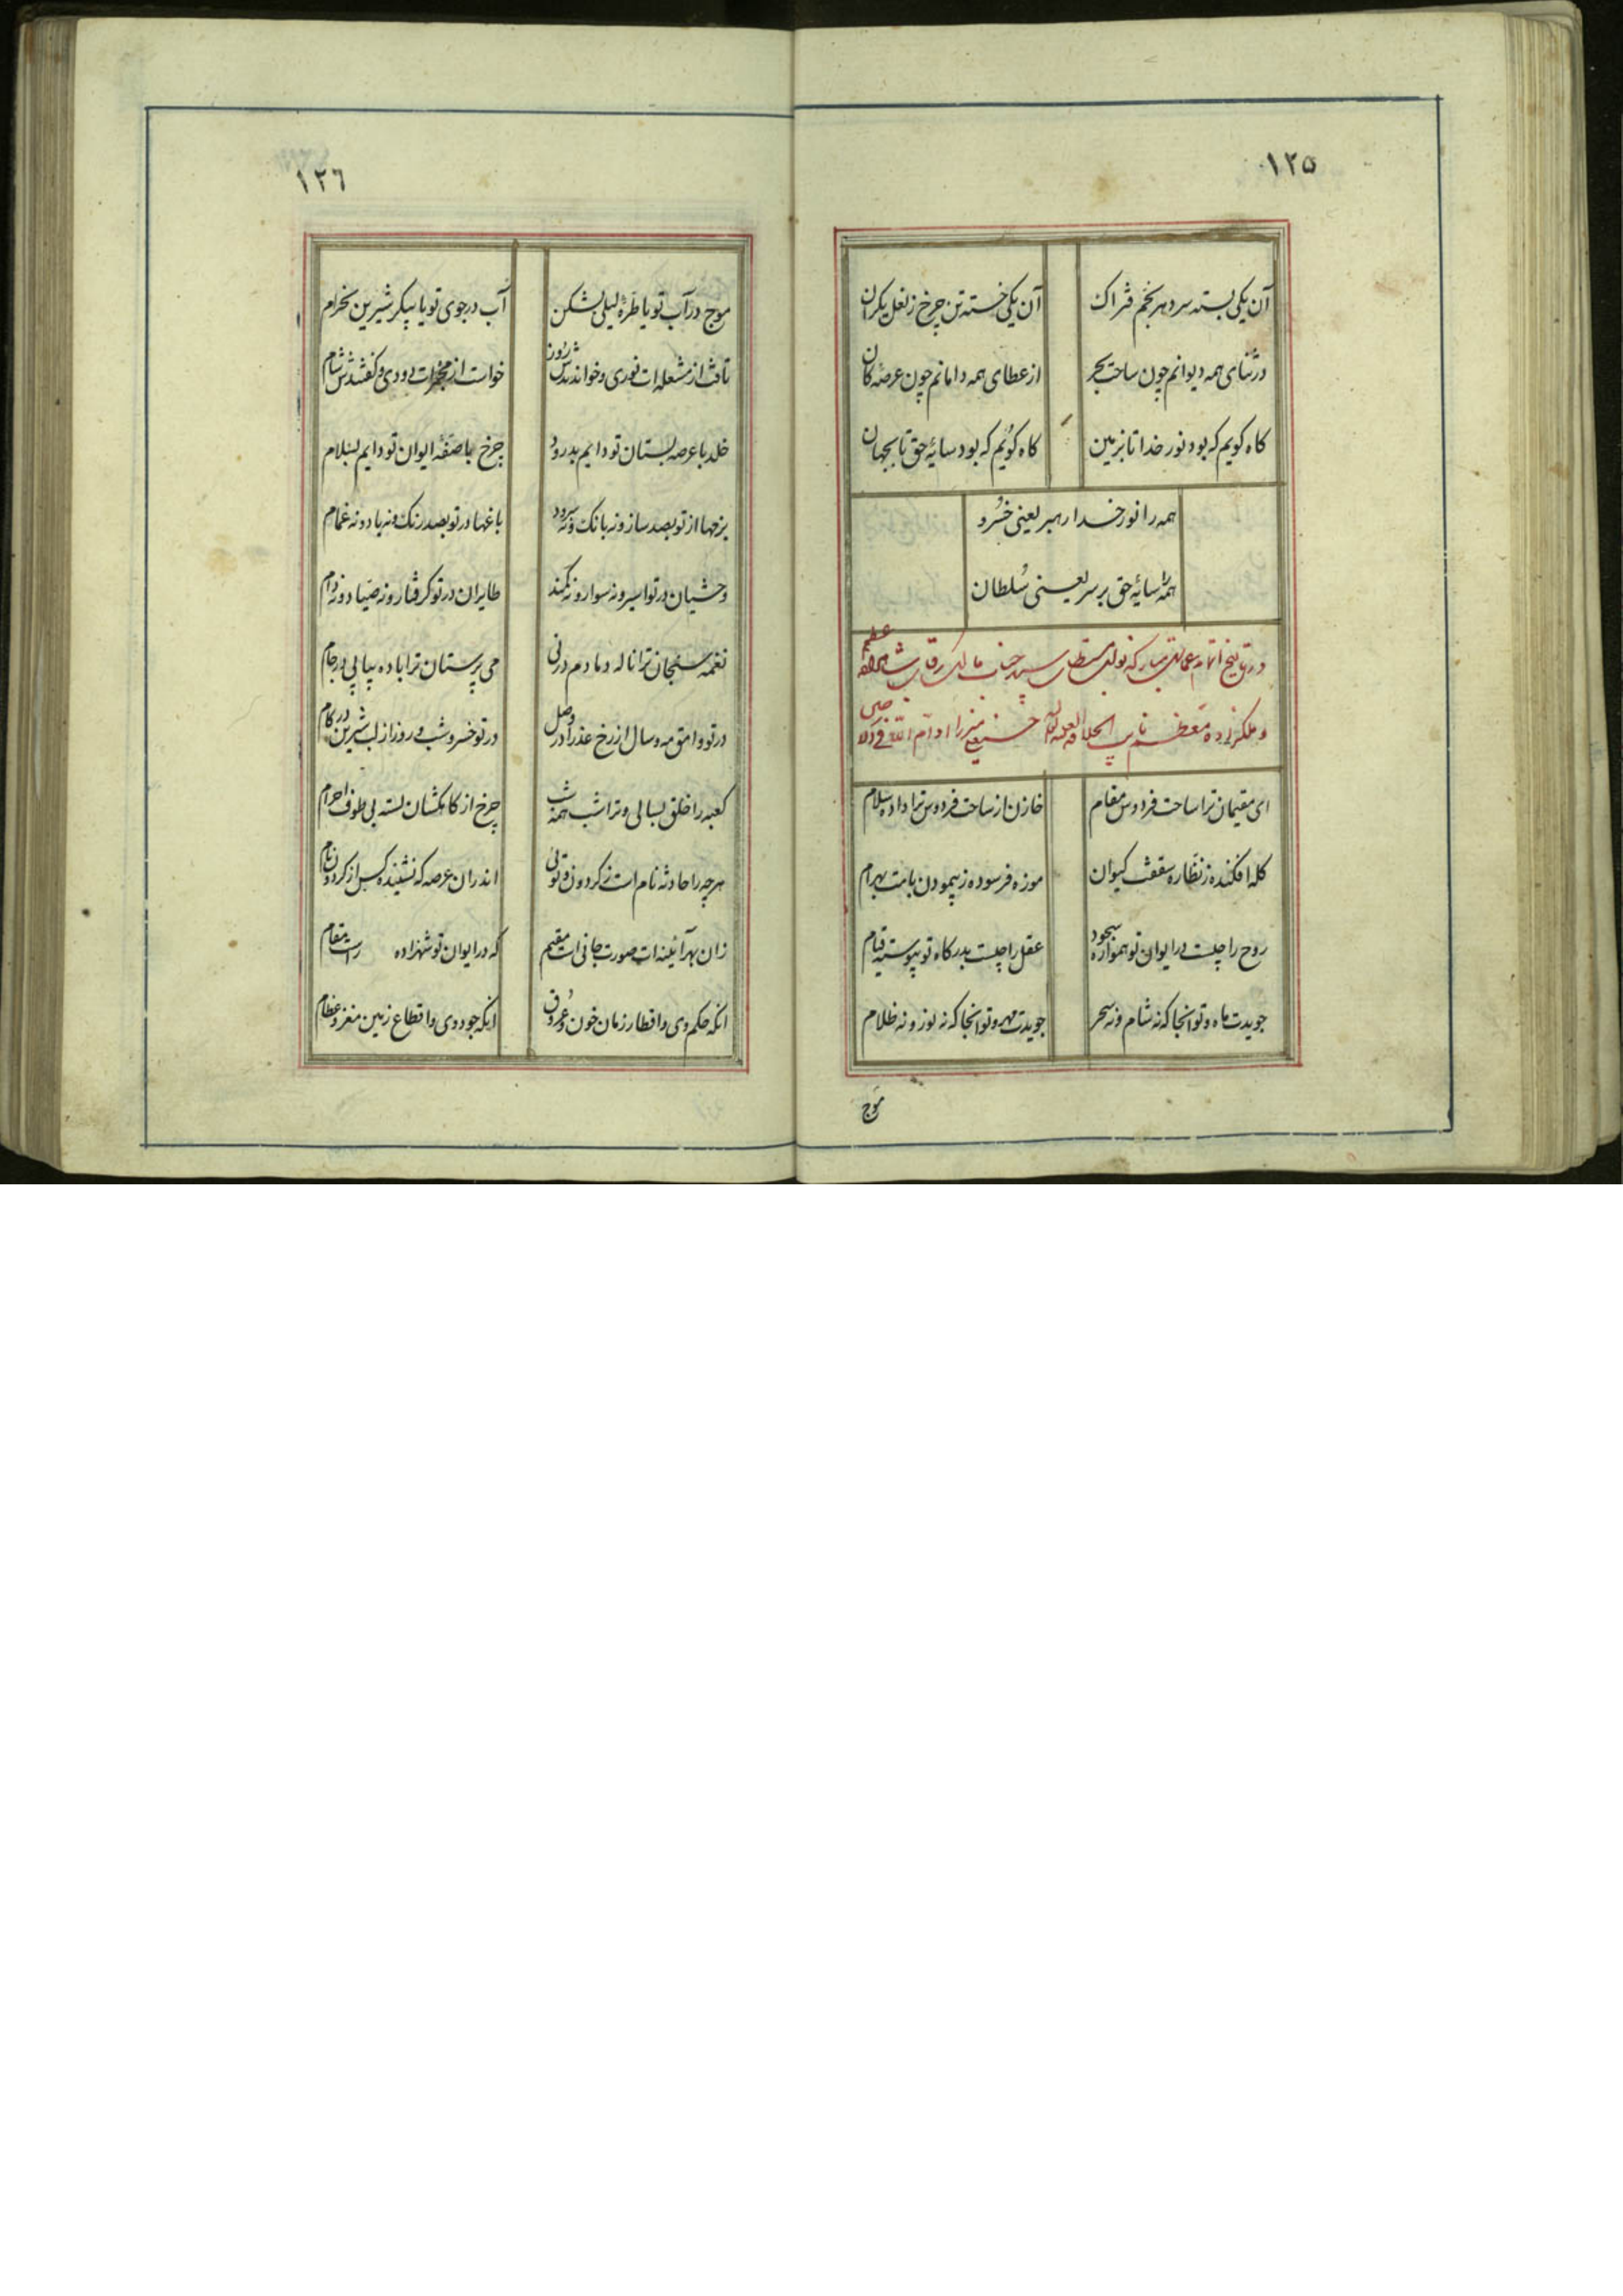 ١٢٥
آن یکی بسته سر دهر بخم فتراک
آن یکی خسته تن چرخ ز نعل یکران
در ثنای همه دیوانم چون ساحت بحر
از عطای همه دامانم چون عرصهٔ کان
کاه کویم که بود نور خدا تا بزمین
کاه کویم که بود سایهٔ حق تا بجهان
همه را نور خدا رهبر یعنی خسرو
همه را سایهٔ حق بر سر یعنی سلطان
در تاریخ اتمام عمارتی مبارکه نواب مستطاب سپهر جناب مالک رقاب شاهزاده اعظم
و ملکزاده معظم نایب حسینعلی میرزا ادام الله
ای مقیمان ترا ساحت فردوس مقام
خازن از ساحت فردوس ترا داده سلام
کله افکنده ز نظاره سقفت کیوان
موزه فرسوده ز پیمودن بامت بهرام
روح را چیست در ایوان تو همواره سجود
عقل را چیست بدرکاه تو پیوسته قیام
جویدت ماه و تو آنجا که نه شام و نه سحر
جویدت مهر و تو آنجا که نه نور و نه ظلام
موج
١٢٦
موج در آب تو یا طرهٔ لیلی بشکن
آب در جوی تو یا پیکر شیرین بخرام
تافت از مشعله ات نوری و خواندندش روز
خواست از مجمرات دودی و کفتندش شام
خلد با عرصه بستان تو دایم بدرود
چرخ با صفهٔ ایوان تو دایم بسلام
بزمها از تو بصد ساز و نه بانک و نه سرود
باغها در تو بصد رنک و نه باد و نه غمام
وحشیان در تو اسیر و نه سوار و نه کمند
طایران در تو کرفتار و نه صیاد و نه دام
نغمه سنجان ترا ناله دمادم در نی
می پرستان ترا باده پیاپی در جام
در تو وامق مه و سال از رخ عذرا در وصل
در تو خسرو شب و روز از لب شیرین در کام
کعبه را خلق بسالی و ترا شب همه شب
چرخ از کاهکشان بسته پی طوف احرام
هرچه را حادثه نام است ز کردون و توئی
اندران عرصه که نشنیده کس از کردون نام
زان بهر آئینه ات صورت جانی است مقیم
که در ایوان تو شهزاده راست مقام
انکه حکم وی و اقطار زمان خون و عروق
انکه جود وی و اقطاع زمین مغز و عظام